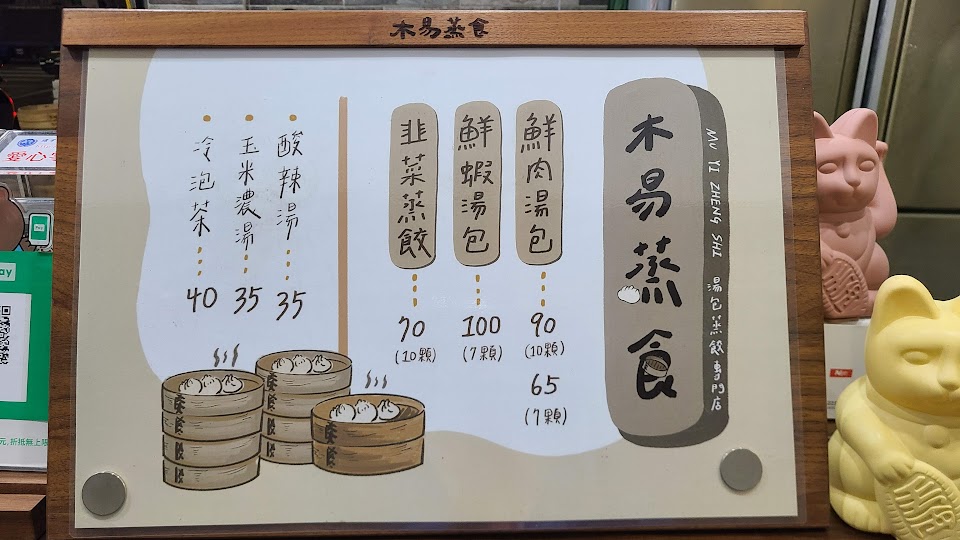 木易蒸食
木易蒸食
MU YI ZHENG SHI 湯包蒸餃專門店
鮮肉湯包
90
(10顆)
65
(7顆)
鮮蝦湯包
100
(7顆)
韭菜蒸餃
70
(10顆)
酸辣湯
35
玉米濃湯
35
冷泡茶
40
愛心
ay
元,折抵無上限